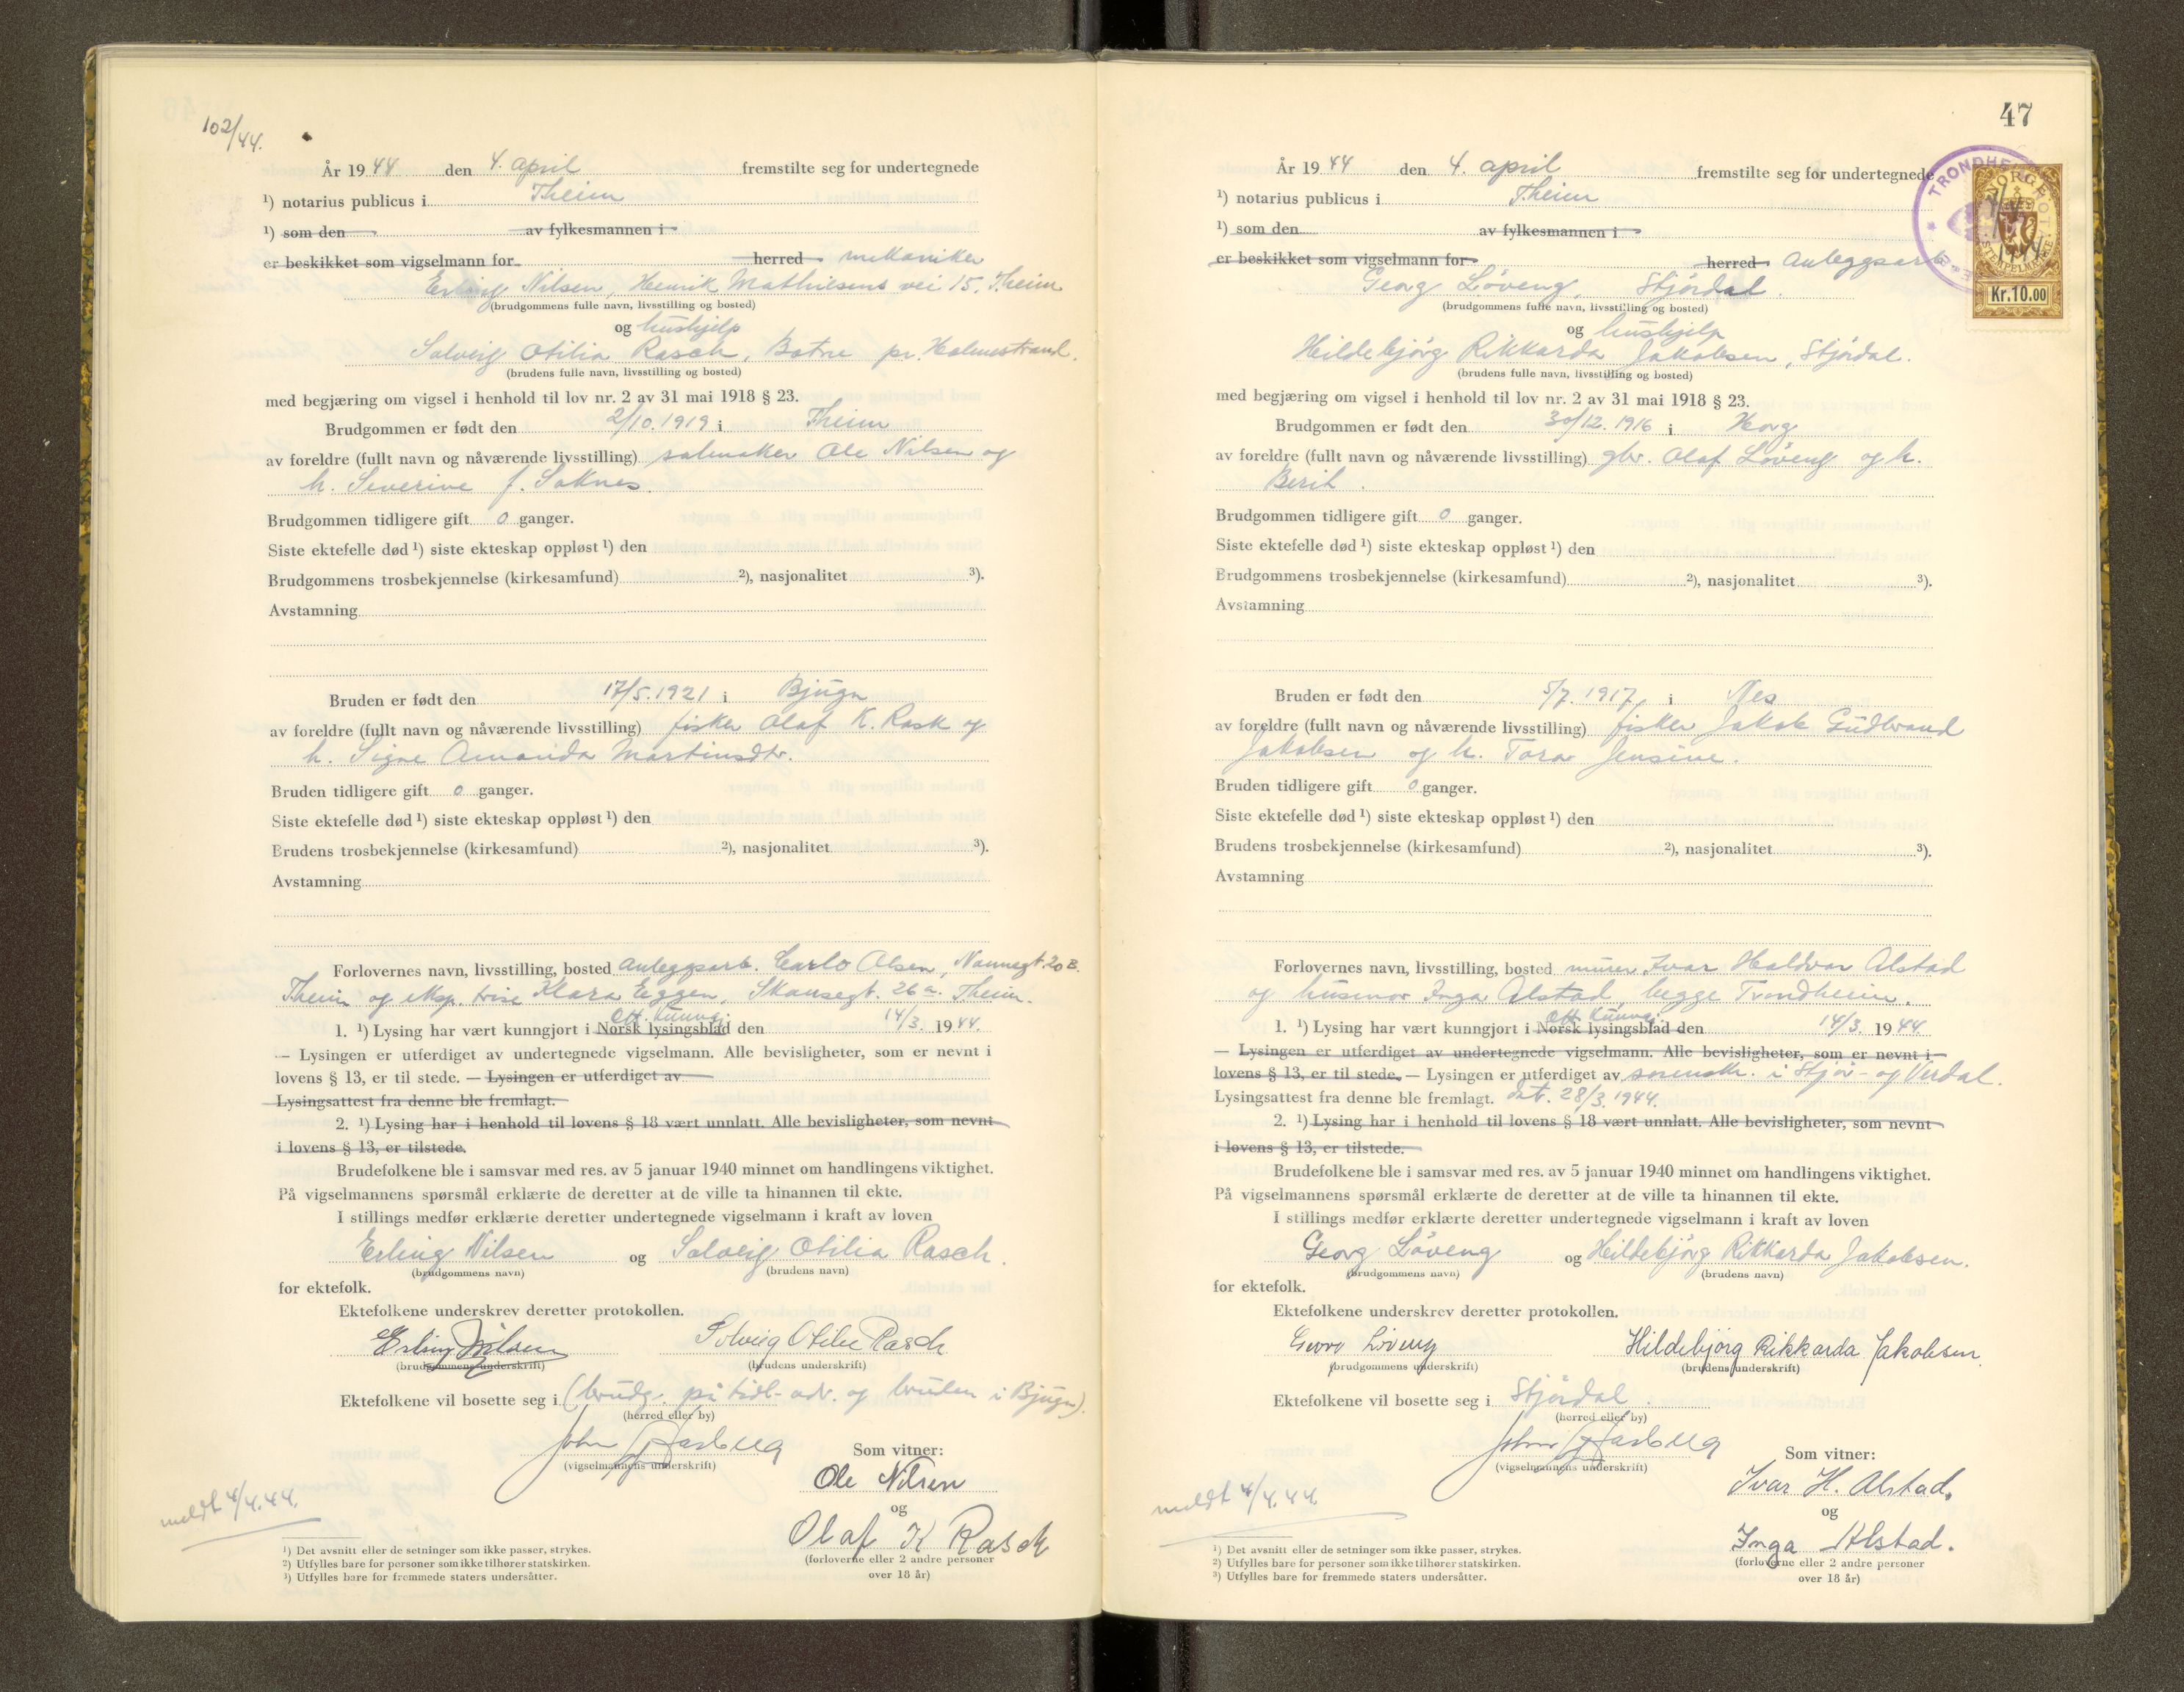 102/44.
År 1944 den 4. april fremstilte seg for undertegnede
¹) notarius publicus i Theim
¹) som den av fylkesmannen i
er beskikket som vigselmann for herred mekaniker
Erling Nilsen, Henrik Mathiesens vei 15, Theim
(brudgommens fulle navn, livsstilling og bosted)
og hushjelp
Solveig Otilia Rasch, Botne pr. Holmestrand.
(brudens fulle navn, livsstilling og bosted)
med begjæring om vigsel i henhold til lov nr. 2 av 31 mai 1918 § 23.
Brudgommen er født den 2/10.1919 i Theim
av foreldre (fullt navn og nåværende livsstilling) salmaker Ole Nilsen og
h. Severine f. Saknes.
Brudgommen tidligere gift 0 ganger.
Siste ektefelle død ¹) siste ekteskap oppløst ¹) den
Brudgommens trosbekjennelse (kirkesamfund) ²), nasjonalitet ³).
Avstamning
Bruden er født den 17/5.1921 i Bjugn
av foreldre (fullt navn og nåværende livsstilling) fisker Olaf K. Rask og
h. Signe Amanda Martinsdtr.
Bruden tidligere gift 0 ganger.
Siste ektefelle død ¹) siste ekteskap oppløst ¹) den
Brudens trosbekjennelse (kirkesamfund) ²), nasjonalitet ³).
Avstamning
Forlovernes navn, livsstilling, bosted anleggsarb. Carlo Olsen, Nannegt. 20 B.
Theim og eksp. trise Klara Eggen, Skansegt. 26 a. Theim.
Off. Kunngj.
1. ¹) Lysing har vært kunngjort i Norsk lysingsblad den 14/3. 1944.
— Lysingen er utferdiget av undertegnede vigselmann. Alle bevisligheter, som er nevnt i
lovens § 13, er til stede. — Lysingen er utferdiget av
Lysingsattest fra denne ble fremlagt.
2. ¹) Lysing har i henhold til lovens § 18 vært unnlatt. Alle bevisligheter, som nevnt
i lovens § 13, er tilstede.
Brudefolkene ble i samsvar med res. av 5 januar 1940 minnet om handlingens viktighet.
På vigselmannens spørsmål erklærte de deretter at de ville ta hinannen til ekte.
I stillings medfør erklærte deretter undertegnede vigselmann i kraft av loven
Erling Nilsen og Solveig Otilia Rasch.
(brudgommens navn) (brudens navn)
for ektefolk.
Ektefolkene underskrev deretter protokollen.
Erling Nilsen Solveig Otilie Rasch
(brudgommens underskrift) (brudens underskrift)
Ektefolkene vil bosette seg i (brudg. på tidl. adr. og bruden i Bjugn).
(herred eller by)
(vigselmannens underskrift)
Som vitner:
Ole Nilsen
og
Olaf K Rasch
(forloverne eller 2 andre personer
over 18 år)
meldt 4/4.44.
¹) Det avsnitt eller de setninger som ikke passer, strykes.
²) Utfylles bare for personer som ikke tilhører statskirken.
³) Utfylles bare for fremmede staters undersåtter.
47
TRONDHE
NORGE
STEMPELMERKE
Kr.10.00
År 1944 den 4. april fremstilte seg for undertegnede
¹) notarius publicus i Theim
¹) som den av fylkesmannen i
er beskikket som vigselmann for herred Anleggsarb
Georg Løveng, Stjørdal.
(brudgommens fulle navn, livsstilling og bosted)
og hushjelp
Hildebjörg Rikkarda Jakobsen, Stjørdal.
(brudens fulle navn, livsstilling og bosted)
med begjæring om vigsel i henhold til lov nr. 2 av 31 mai 1918 § 23.
Brudgommen er født den 30/12.1916 i Horg
av foreldre (fullt navn og nåværende livsstilling) gbr. Olaf Løveng og h.
Berit.
Brudgommen tidligere gift 0 ganger.
Siste ektefelle død ¹) siste ekteskap oppløst ¹) den
Brudgommens trosbekjennelse (kirkesamfund) ²), nasjonalitet ³).
Avstamning
Bruden er født den 5/7.1917, i Nes
av foreldre (fullt navn og nåværende livsstilling) fisker Jakob Gudbrand
Jakobsen og h. Tora Jensine.
Bruden tidligere gift 0 ganger.
Siste ektefelle død ¹) siste ekteskap oppløst ¹) den
Brudens trosbekjennelse (kirkesamfund) ²), nasjonalitet ³).
Avstamning
Forlovernes navn, livsstilling, bosted murer Ivar Haldvor Alstad
og husmor Inga Alstad, begge Trondheim.
Off. Kunngj.
1. ¹) Lysing har vært kunngjort i Norsk lysingsblad den 14/3. 1944.
— Lysingen er utferdiget av undertegnede vigselmann. Alle bevisligheter, som er nevnt i
lovens § 13, er til stede. — Lysingen er utferdiget av sorenskr. i Stjør- og Verdal.
Lysingsattest fra denne ble fremlagt. dat. 28/3.1944.
2. ¹) Lysing har i henhold til lovens § 18 vært unnlatt. Alle bevisligheter, som nevnt
i lovens § 13, er tilstede.
Brudefolkene ble i samsvar med res. av 5 januar 1940 minnet om handlingens viktighet.
På vigselmannens spørsmål erklærte de deretter at de ville ta hinannen til ekte.
I stillings medfør erklærte deretter undertegnede vigselmann i kraft av loven
Georg Løveng og Hildebjörg Rikkarda Jakobsen.
(brudgommens navn) (brudens navn)
for ektefolk.
Ektefolkene underskrev deretter protokollen.
Georg Løveng Hildebjörg Rikkarda Jakobsen
(brudgommens underskrift) (brudens underskrift)
Ektefolkene vil bosette seg i Stjørdal.
(herred eller by)
(vigselmannens underskrift)
Som vitner:
Ivar H. Alstad.
og
Inga Alstad.
(forloverne eller 2 andre personer
over 18 år)
meldt 4/4.44.
¹) Det avsnitt eller de setninger som ikke passer, strykes.
²) Utfylles bare for personer som ikke tilhører statskirken.
³) Utfylles bare for fremmede staters undersåtter.